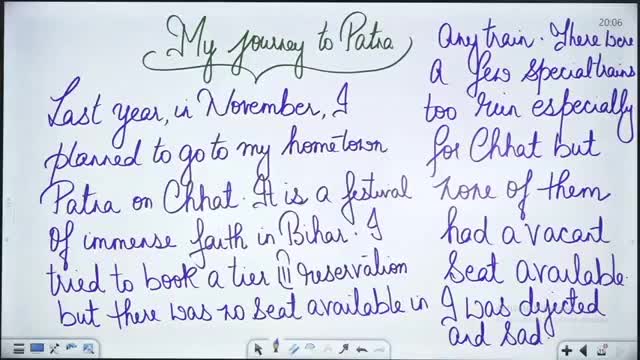 20:06
My journey to Patna
Last year, in November, I
planned to go to my hometown
Patna on Chhat. It is a festival
Of immense faith in Bihar. I
tried to book a tier III reservation
but there was no seat available in
Any train. There were
A few special trains
too run especially
for Chhat but
none of them
had a vacant
seat available.
I was dejected
and sad.